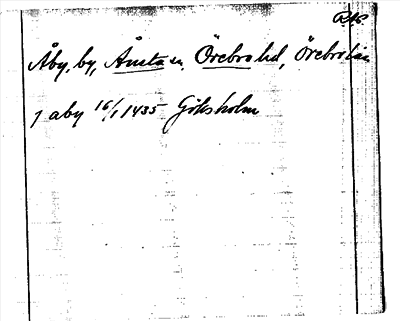 Åby, by, Ånsta sn, Örebro hd, Örebro län
j aby 16/1 1435 Göksholm